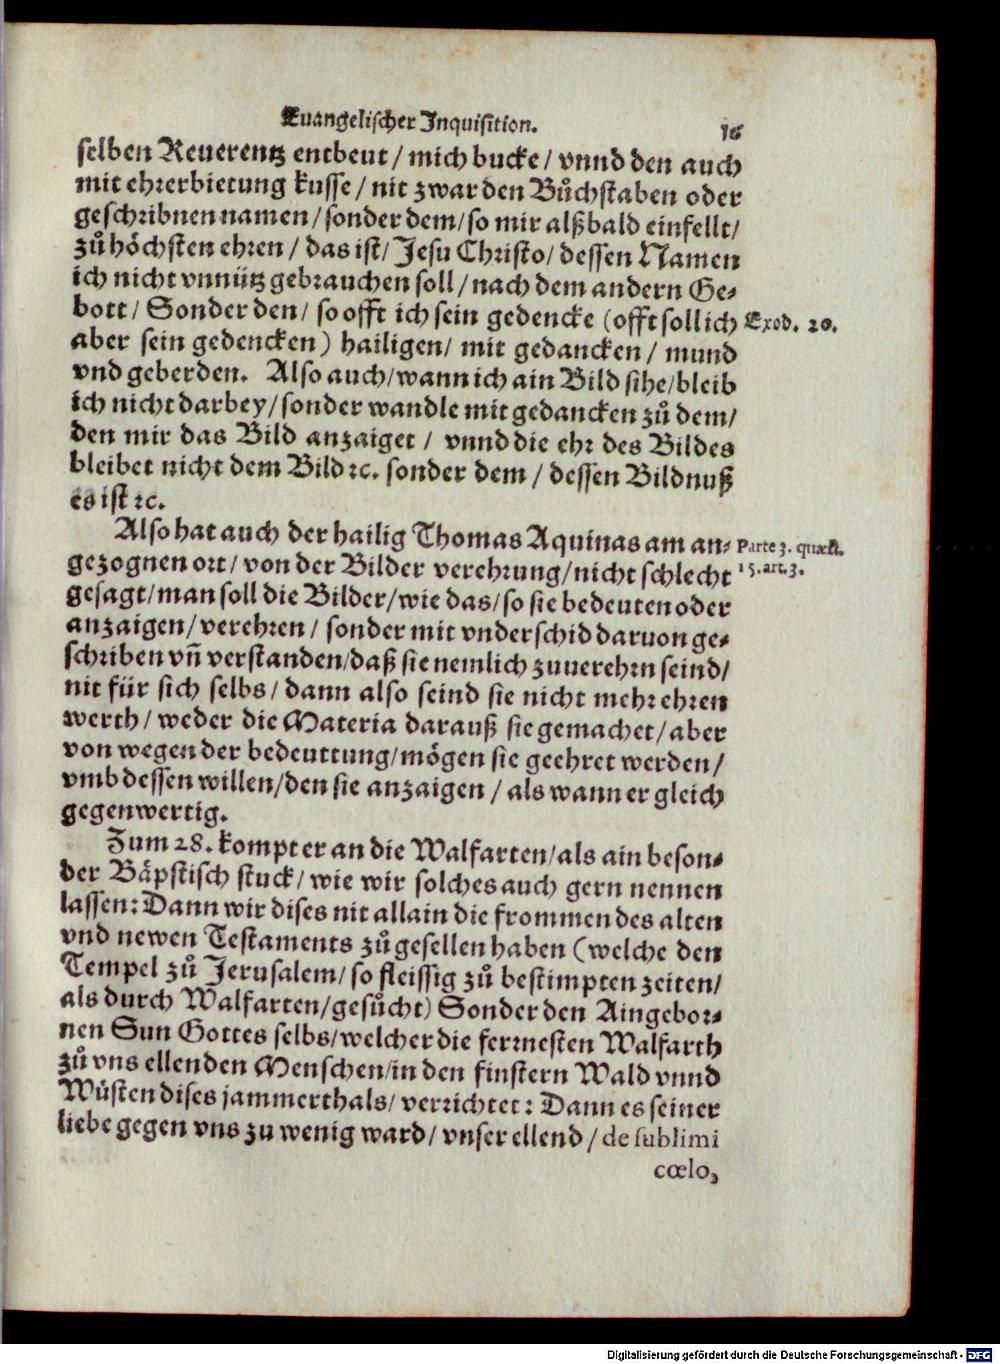 Euangelischer Inquisition. 16
selben Reuerentz entbeut / mich bucke / vnnd den auch
mit ehrerbietung kusse / nit zwar den Bůchstaben oder
geschribnen namen / sonder dem / so mir alßbald einfellt /
zů höchsten ehren / das ist / Jesu Christo / dessen Namen
ich nicht vnnütz gebrauchen soll / nach dem andern Ge-
bott / Sonder den / so offt ich sein gedencke (offt soll ich
Exod. 20.
aber sein gedencken) hailigen / mit gedancken / mund
vnd geberden. Also auch / wann ich ain Bild sihe / bleib
ich nicht darbey / sonder wandle mit gedancken zů dem /
den mir das Bild anzaiget / vnnd die ehr des Bildes
bleibet nicht dem Bild ꝛc. sonder dem / dessen Bildnuß
es ist ꝛc.
Also hat auch der hailig Thomas Aquinas am an-
Parte 3. quæst.
gezognen ort / von der Bilder verehrung / nicht schlecht
15. art. 3.
gesagt / man soll die Bilder / wie das / so sie bedeuten oder
anzaigen / verehren / sonder mit vnderschid daruon ge-
schriben vñ verstanden / daß sie nemlich zuuerehrn seind /
nit für sich selbs / dann also seind sie nicht mehr ehren
werth / weder die Materia darauß sie gemachet / aber
von wegen der bedeuttung / mögen sie geehret werden /
vmb dessen willen / den sie anzaigen / als wann er gleich
gegenwertig.
Zum 28. kompt er an die Walfarten / als ain beson-
der Bäpstisch stuck / wie wir solches auch gern nennen
lassen: Dann wir dises nit allain die frommen des alten
vnd newen Testaments zů gesellen haben (welche den
Tempel zů Jerusalem / so fleissig zů bestimpten zeiten /
als durch Walfarten / gesůcht) Sonder den Aingebor-
nen Sun Gottes selbs / welcher die ferrnesten Walfarth
zů vns ellenden Menschen / in den finstern Wald vnnd
Wüsten dises jammerthals / verrichtet: Dann es seiner
liebe gegen vns zu wenig ward / vnser ellend / de sublimi
cœlo,
Digitalisierung gefördert durch die Deutsche Forschungsgemeinschaft - DFG